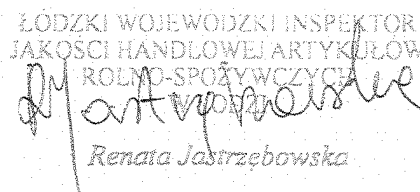 ŁÓDZKI WOJEWÓDZKI INSPEKTOR
JAKOŚCI HANDLOWEJ ARTYKUŁÓW
ROLNO-SPOŻYWCZYCH
W ŁODZI
Renata Jastrzębowska